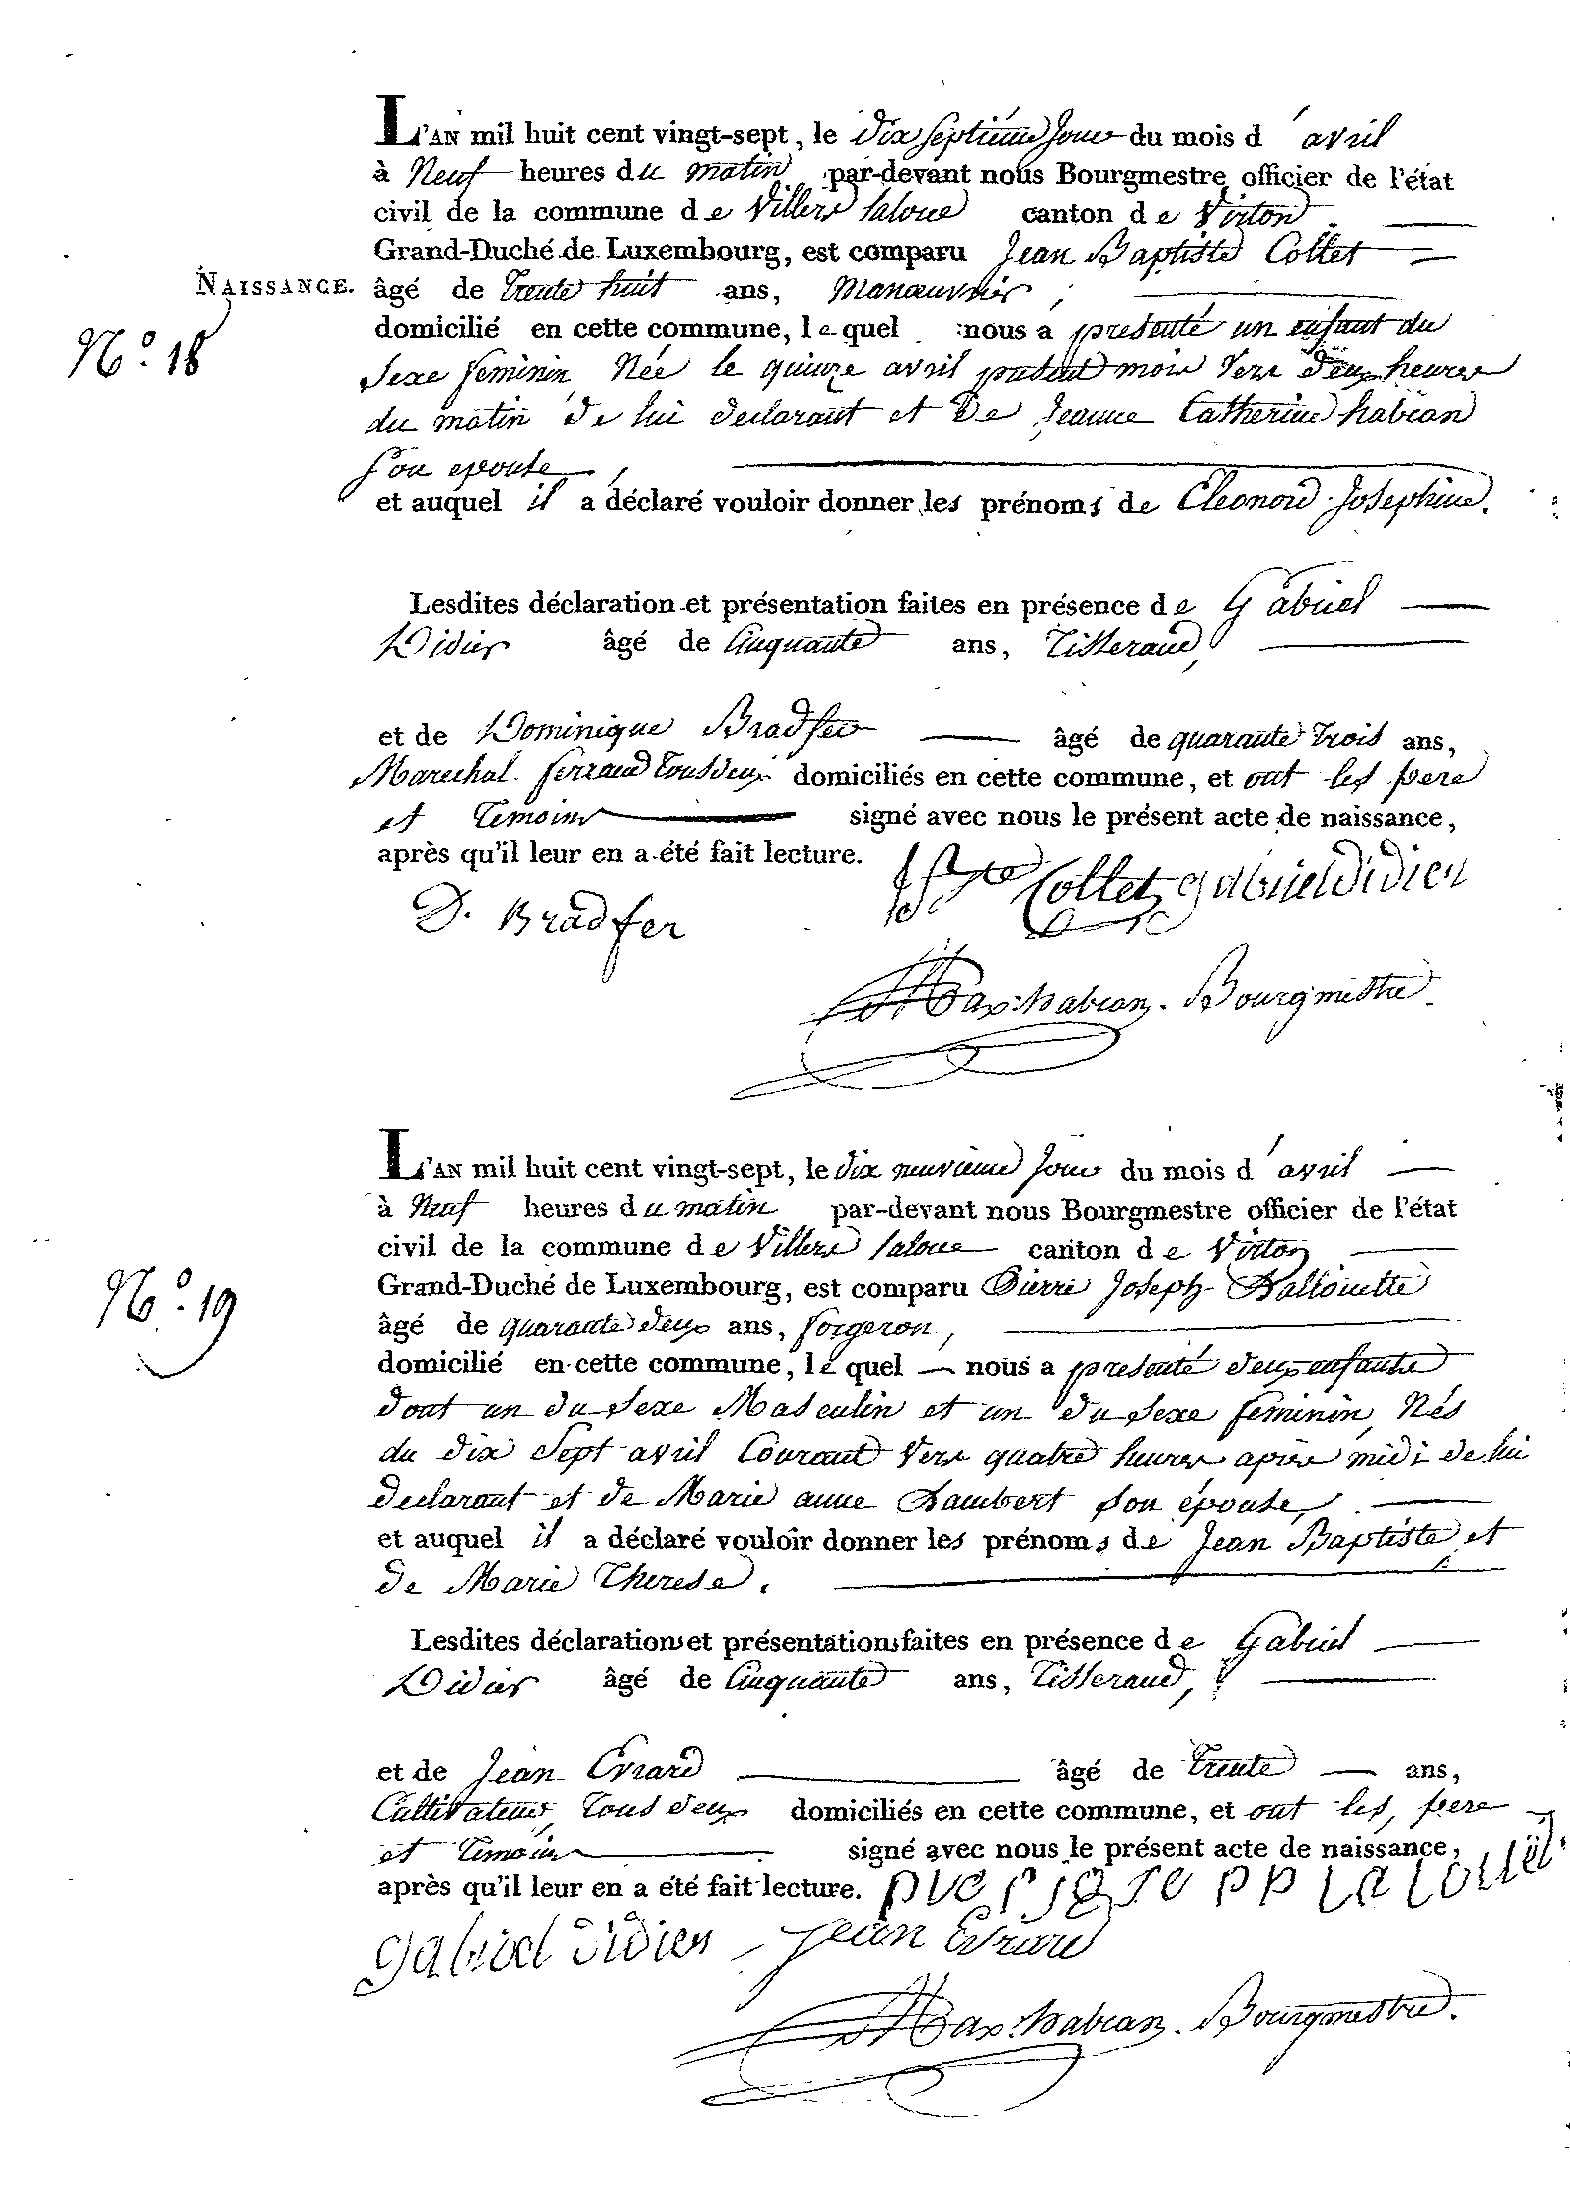 L'AN mil huit cent vingt-sept, le dix septième jour du mois d'avril
à Neuf heures du matin par-devant nous Bourgmestre officier de l'état
civil de la commune de Villers laloue canton de Virton
Grand-Duché de Luxembourg, est comparu Jean Baptiste Collet
NAISSANCE.
âgé de trente huit ans, Manœuvrier,
N.° 18
domicilié en cette commune, le quel nous a presenté un enfant du
sexe feminin, Née le quinze avril present mois vers deux heures
du matin de lui declarant et de Jeanne Catherine habran
son epouse,
et auquel il a déclaré vouloir donner les prénoms de Eleonord Josephine.
Lesdites déclaration et présentation faites en présence de Gabriel
Didier âgé de Cinquante ans, Tisserand,
et de Dominique Bradfer âgé de quarante trois ans,
Marechal ferrand tous deux domiciliés en cette commune, et ont les pere
et temoins signé avec nous le présent acte de naissance,
après qu'il leur en a été fait lecture.
Collet gabriel didier
D. Bradfer
Max: habran. Bourgmestre.
L'AN mil huit cent vingt-sept, le dix neuvieme jour du mois d'avril
à Neuf heures du matin par-devant nous Bourgmestre officier de l'état
civil de la commune de Villers laloue canton de Virton
N.° 19
Grand-Duché de Luxembourg, est comparu Pierre Joseph Lallouette
âgé de quarante deux ans, forgeron,
domicilié en cette commune, le quel nous a presenté deux enfants
dont un du sexe Masculin et un du sexe feminin, Nés
du dix sept avril Courant vers quatre heures après midi de lui
declarant et de Marie anne Lambert son épouse,
et auquel il a déclaré vouloir donner les prénoms de Jean Baptiste et
de Marie Therese.
Lesdites déclarations et présentations faites en présence de Gabriel
Didier âgé de Cinquante ans, Tisserand,
et de Jean Evrard âgé de trente ans,
Cultivateur, tous deux domiciliés en cette commune, et ont les, pere
et temoins signé avec nous le présent acte de naissance,
après qu'il leur en a été fait lecture.
gabriel didier Jean Evrard
Max: habran. Bourgmestre.